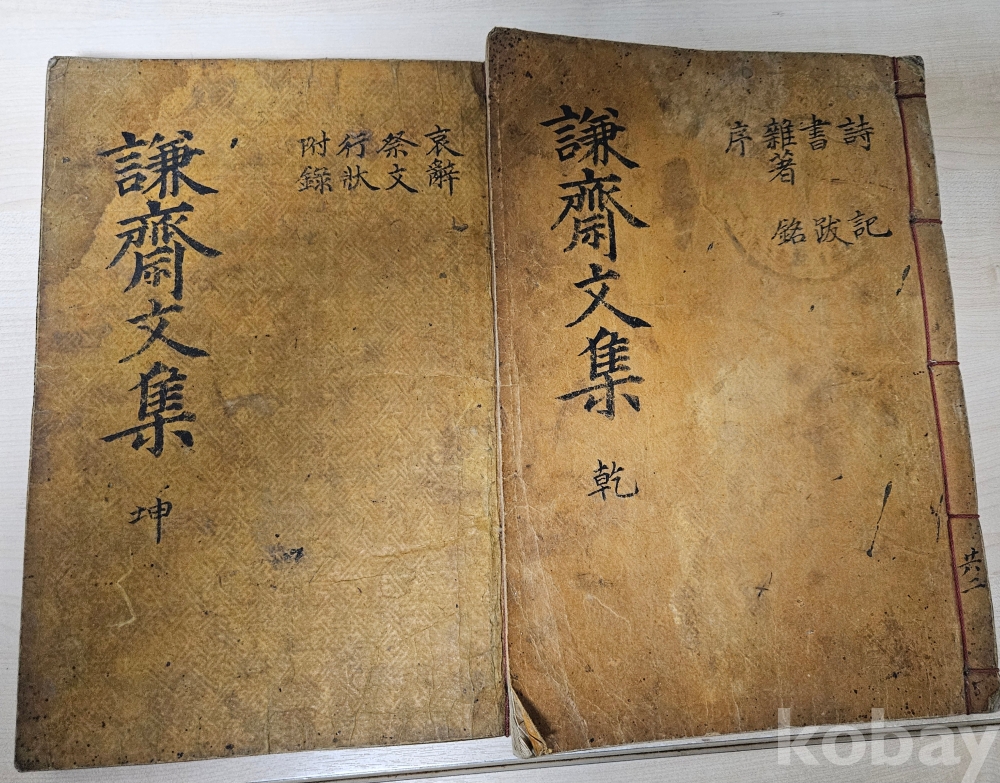 詩
書
雜著
序
記
跋
銘
謙齋文集
乾
共二
哀辭
祭文
行狀
附錄
謙齋文集
坤
kobay